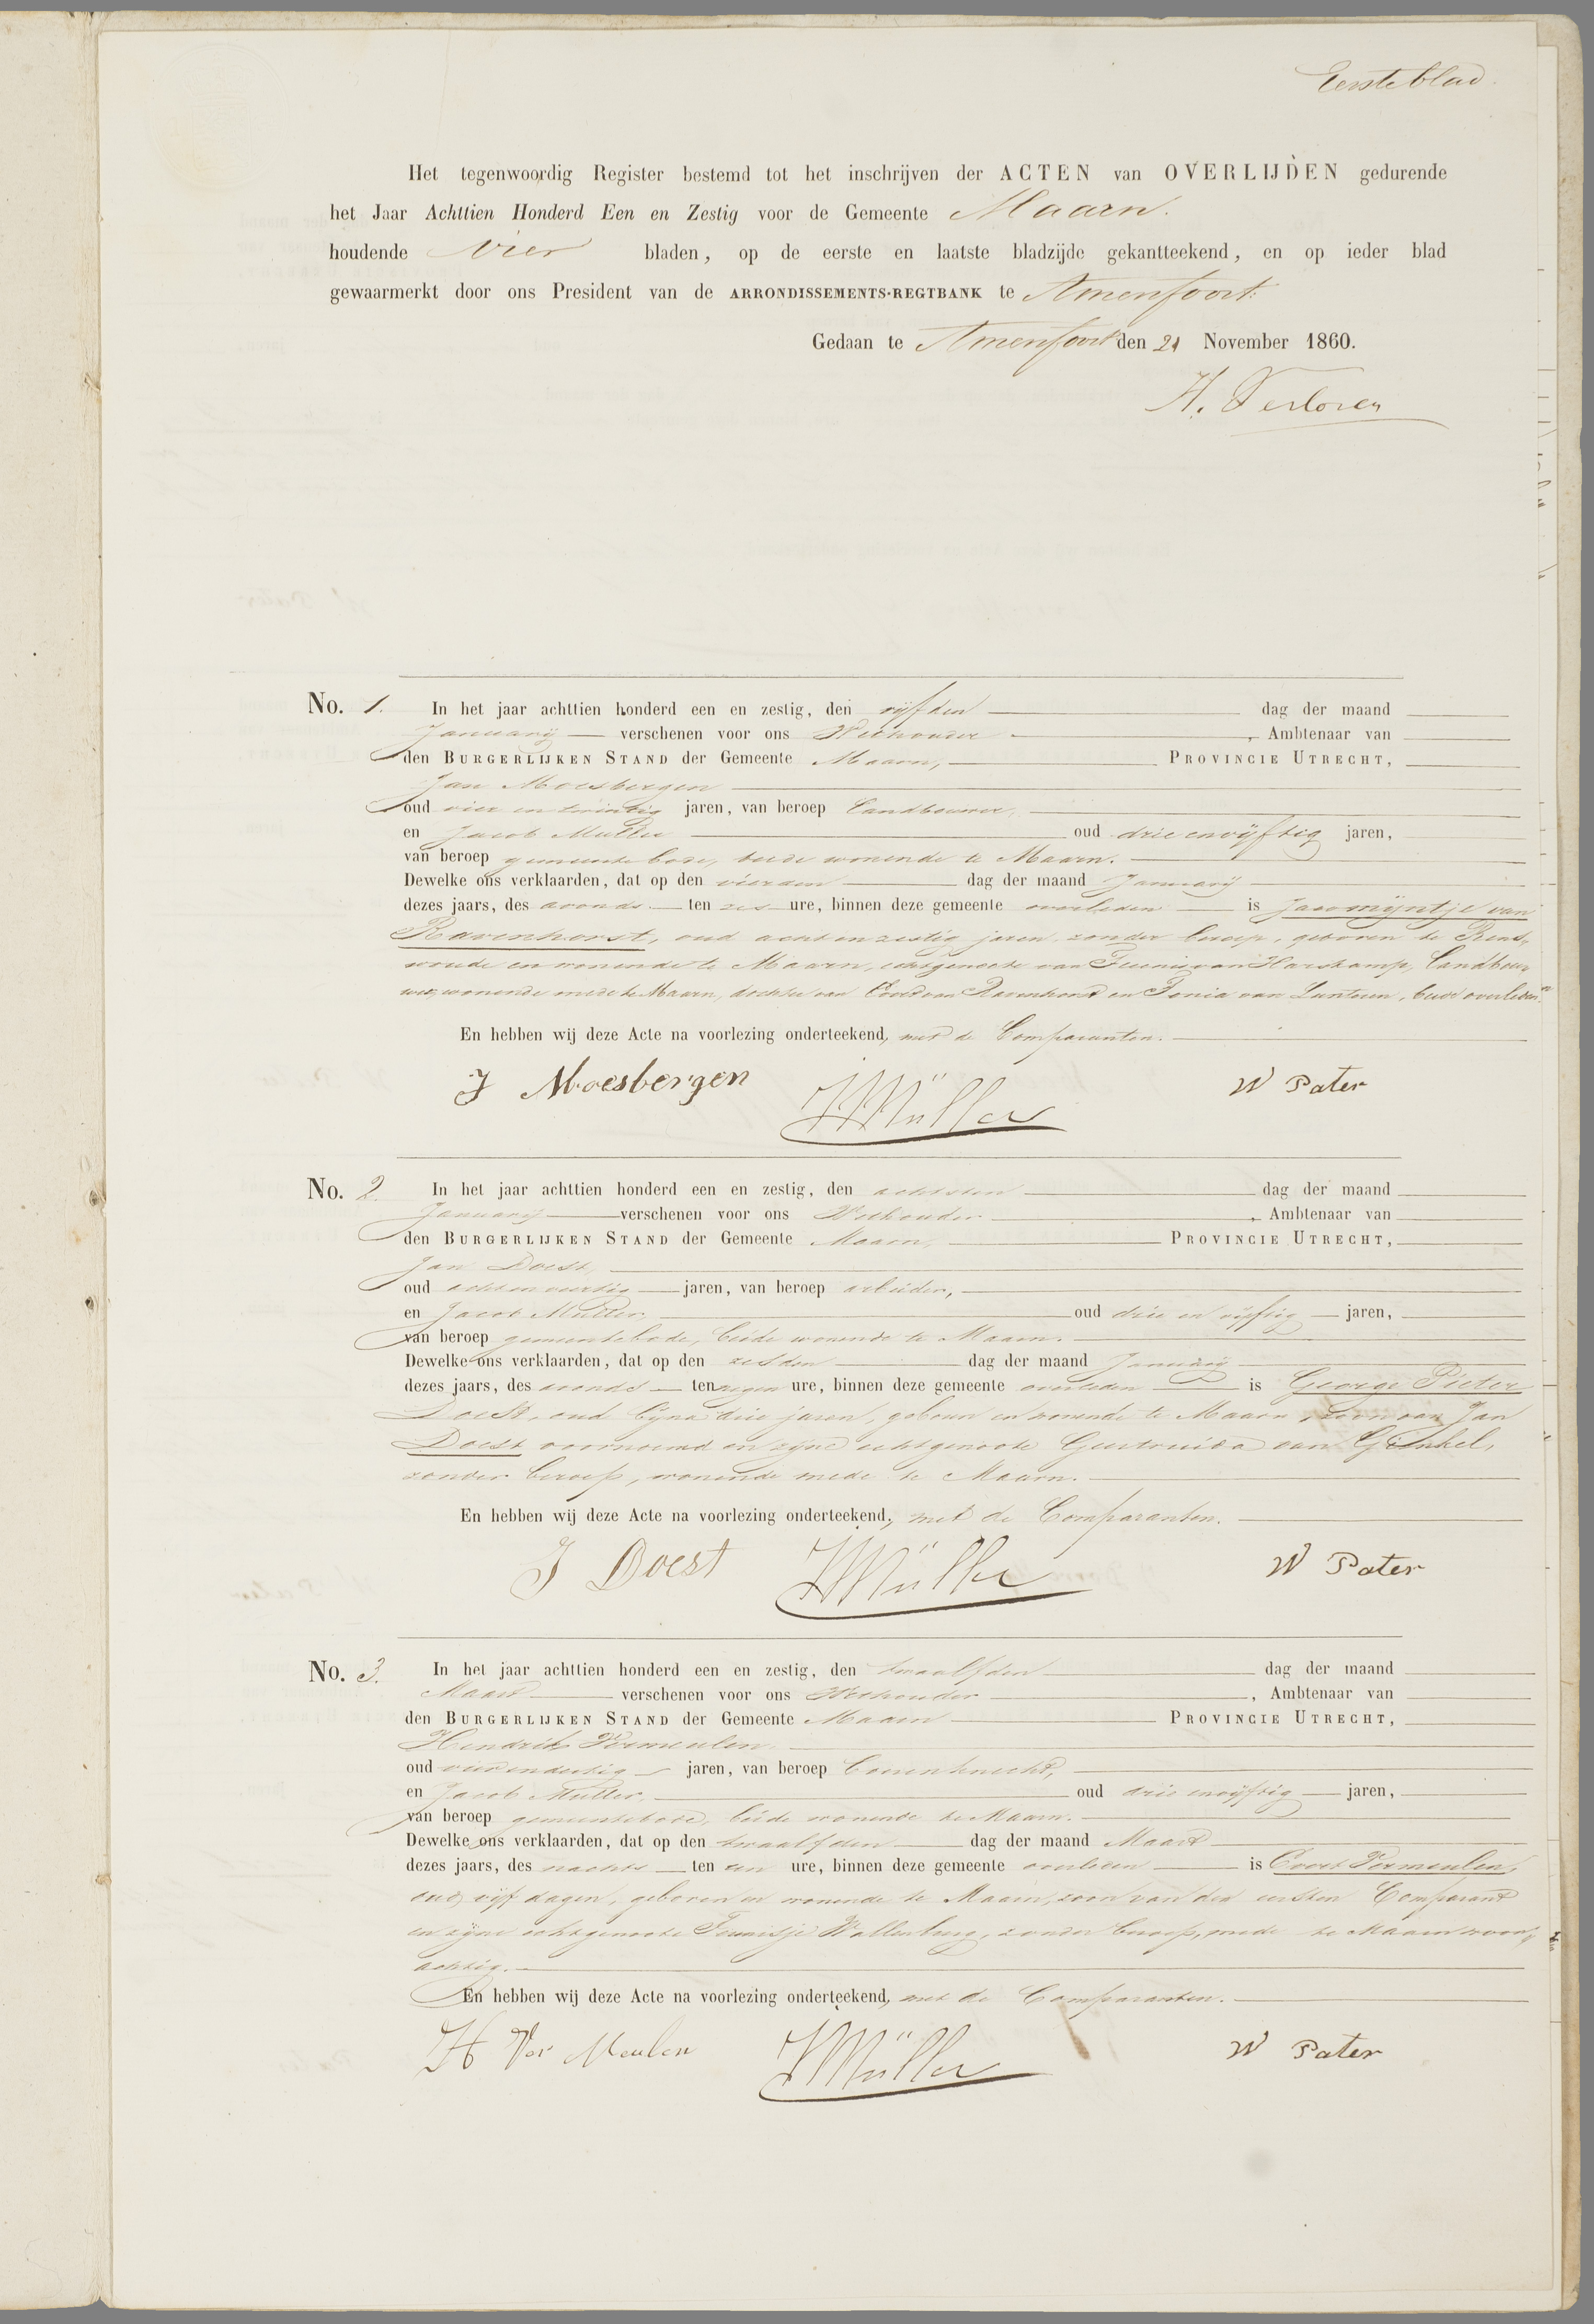 Eerste blad
Het tegenwoordig Register bestemd tot het inschrijven der ACTEN van OVERLIJDEN gedurende
het Jaar Achttien Honderd Een en Zestig voor de Gemeente Maarn.
houdende vier bladen, op de eerste en laatste bladzijde gekantteekend, en op ieder blad
gewaarmerkt door ons President van de ARRONDISSEMENTS-REGTBANK te Amersfoort.
Gedaan te Amersfoort den 21 November 1860.
H. Verloren
No. 1. In het jaar achttien honderd een en zestig, den vijfden dag der maand
Januarij verschenen voor ons Wethouder , Ambtenaar van
den BURGERLIJKEN STAND der Gemeente Maarn, PROVINCIE UTRECHT,
Jan Moesbergen
oud vier en twintig jaren, van beroep Landbouwer,
en Jacob Muller oud drie en vijftig jaren,
van beroep gemeente bode, beide wonende te Maarn.
Dewelke ons verklaarden, dat op den vierden dag der maand Januarij
dezes jaars, des avonds ten zes ure, binnen deze gemeente overleden is Jacomijntje van
Ravenhorst, oud acht en zestig jaren, zonder beroep, geboren te Rens-
woude en wonende te Maarn, echtgenoote van Teunis van Harskamp, Landbou-
wer, wonende mede te Maarn, dochter van Evert van Ravenhorst en Tonia van Lunteren, beide overleden.
En hebben wij deze Acte na voorlezing onderteekend, met de Comparanten.
J Moesbergen JMüller W Pater
No. 2. In het jaar achttien honderd een en zestig, den achtsten dag der maand
Januarij verschenen voor ons Wethouder , Ambtenaar van
den BURGERLIJKEN STAND der Gemeente Maarn, PROVINCIE UTRECHT,
Jan Doest,
oud acht en veertig jaren, van beroep arbeider,
en Jacob Muller, oud drie en vijftig jaren,
van beroep gemeentebode, beide wonende te Maarn.
Dewelke ons verklaarden, dat op den zesden dag der maand Januarij
dezes jaars, des avonds ten negen ure, binnen deze gemeente overleden is George Pieter
Doest, oud bijna drie jaren, geboren en wonende te Maarn, zoon van Jan
Doest voornoemd en zijne echtgenoote Geertruida van Ginkel,
zonder beroep, wonende mede te Maarn.
En hebben wij deze Acte na voorlezing onderteekend, met de Comparanten.
J Doest JMüller W Pater
No. 3. In het jaar achttien honderd een en zestig, den twaalfden dag der maand
Maart verschenen voor ons Wethouder , Ambtenaar van
den BURGERLIJKEN STAND der Gemeente Maarn PROVINCIE UTRECHT,
Hendrik Vermeulen
oud jaren, van beroep Boerenknecht,
en Jacob Muller, oud drie en vijftig jaren,
van beroep gemeentebode, beide wonende te Maarn.
Dewelke ons verklaarden, dat op den twaalfden dag der maand Maart
dezes jaars, des nachts ten een ure, binnen deze gemeente overleden is Evert Vermeulen,
oud vijf dagen, geboren en wonende te Maarn, zoon van den eersten Comparant
en zijne echtgenoote Teunisje Wallenburg, zonder beroep, mede te Maarn woon-
achtig.
En hebben wij deze Acte na voorlezing onderteekend, met de Comparanten.
H Ver Meulen JMüller W Pater